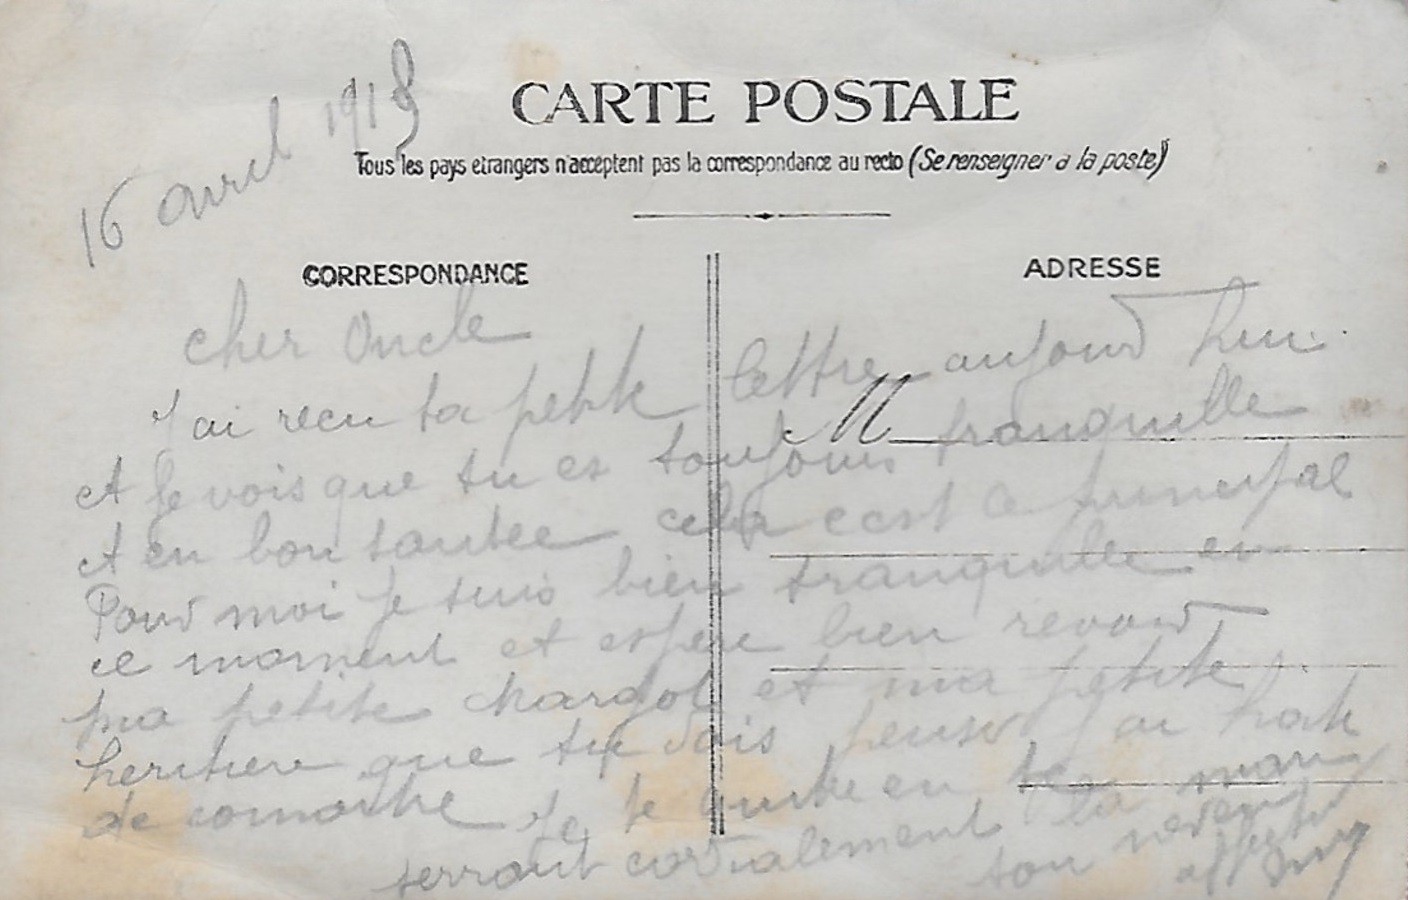 16 avril 1918
CARTE POSTALE
Tous les pays etrangers n'acceptent pas la correspondance au recto (Se renseigner a la poste)
CORRESPONDANCE
ADRESSE
cher Oncle
J ai recu ta petite lettre aujourd hui
M
et je vois que tu es toujours tranquille
et en bon santee cela c est le principal
Pour moi je suis bien tranquille en
ce moment et espere bien revoir
ma petite et ma petite
heritiere que tu dois penser j ai hate
de comaitre je te quitte en te
serrant cordialement la main
ton neveu